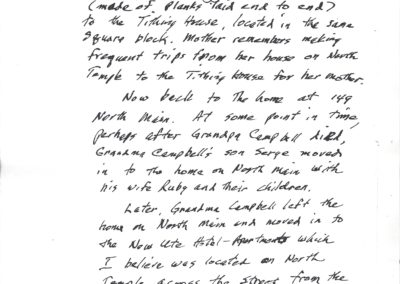 (made of planks laid end to end)
to the Tithing House, located in the same
square block. Mother remembers making
frequent trips from her house on North
Temple to the Tithing House for her mother.
Now back to the home at 149
North Main. At some point in time,
perhaps after Grandpa Campbell died,
Grandma Campbell's son Serge moved
in to the home on North Main with
his wife Ruby and their children.
Later, Grandma Campbell left the
home on North Main and moved in to
the New Ute Hotel-Apartments which
I believe was located on North
Temple across the street from the